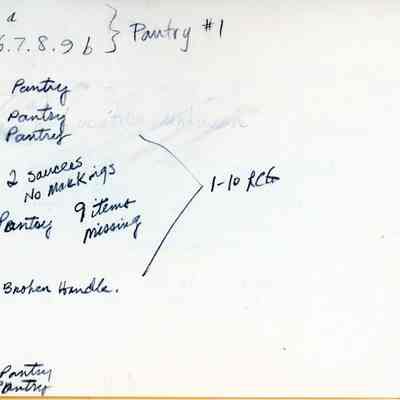 a
6.7.8.9 b } Pantry #1
Pantry
Pantry
Pantry
2 sauces
No Markings
1-10
Pantry 9 items
Missing
Broken Handle.
Pantry
Pantry